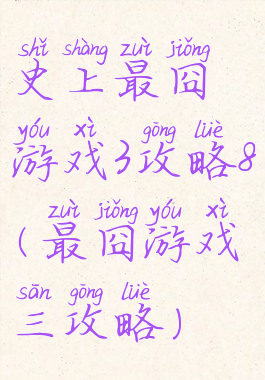 shǐ shàng zuì jiǒng
史上最囧
yóu xì gōng lüè
游戏3攻略8
zuì jiǒng yóu xì
(最囧游戏
sān gōng lüè
三攻略)